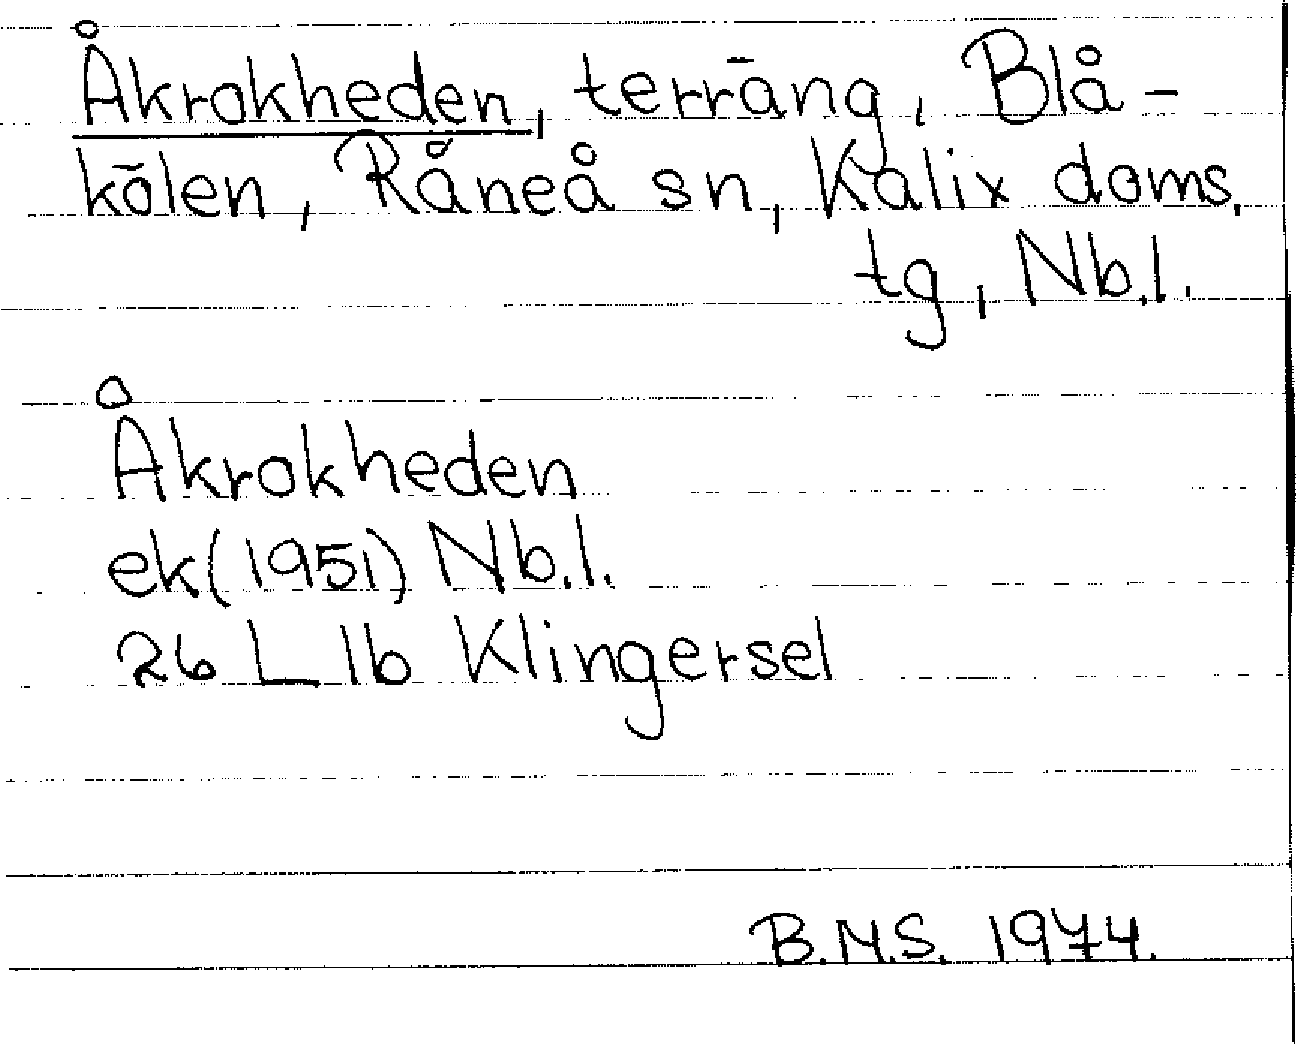 Åkrokheden, terräng, Blå-
kölen, Råneå sn, Kalix doms.
tg, Nb.l.
Åkrokheden
ek(1951) Nb.l.
26 L 1b Klingersel
B.M.S. 1974.